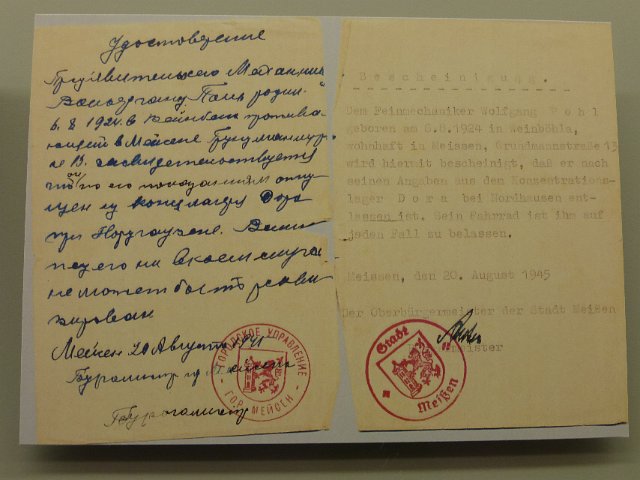 Удостоверение
Предъявителю сего Механику
Вольфгангу Поль родив.
6.8 1924 в Вейнбёла прожива-
ющей в Мейсене
№ 13. засвидетельствуется
что он по его показаниям отпу-
щен из концлагеря Дора
при Нордгаузене.
не может быть рекви-
зирован
Мейсен 20 Августа
Бургомистр
Бургомистр
ГОРОДСКОЕ УПРАВЛЕНИЕ
ГОР. МЕЙСЕН
Bescheinigung.
Dem Feinmechaniker Wolfgang ohl
geboren am 6.8.1924 in Weinböhla,
wohnhaft in Meissen, Grundmannstraße 13
wird hiermit bescheinigt, daß er nach
seinen Angaben aus den Konzentrations-
lager Dora bei Nordhausen ent-
lassen ist. Sein Fahrrad ist ihm auf
jeden Fall zu belassen.
Meissen, den 20. August 1945
Der Oberbürgermeister der Stadt Meißen
Stadt
Meißen